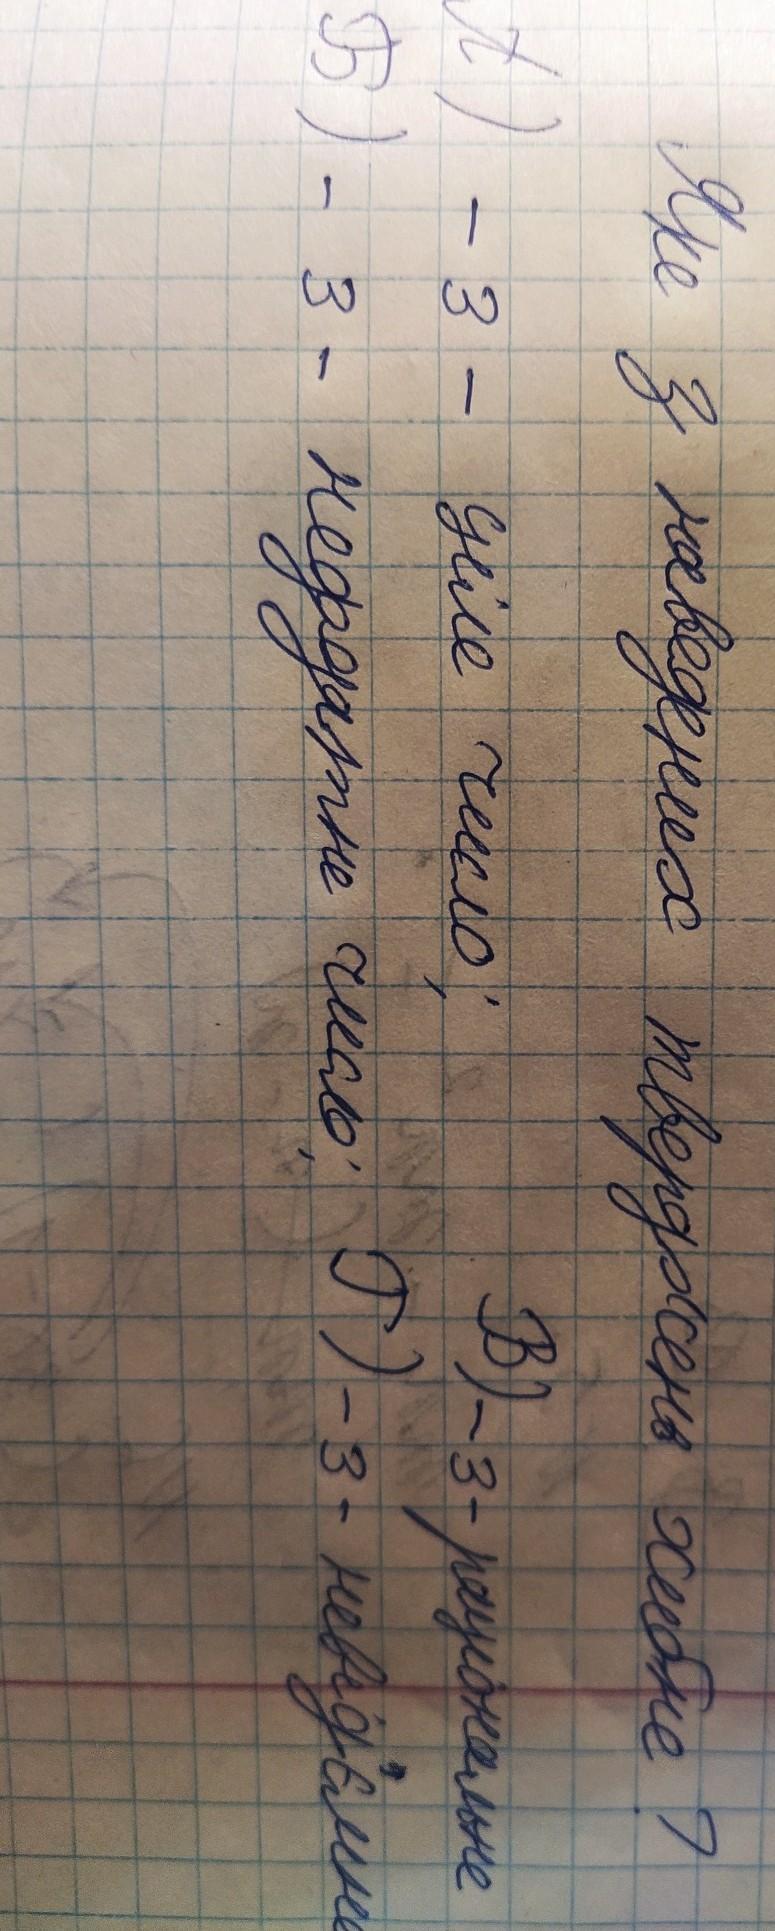 Яке з наведених тверджень хибне?
А) -3 - ціле число; В) -3 - раціональне
Б) -3 - недодатне число; Г) -3 - невід'ємне